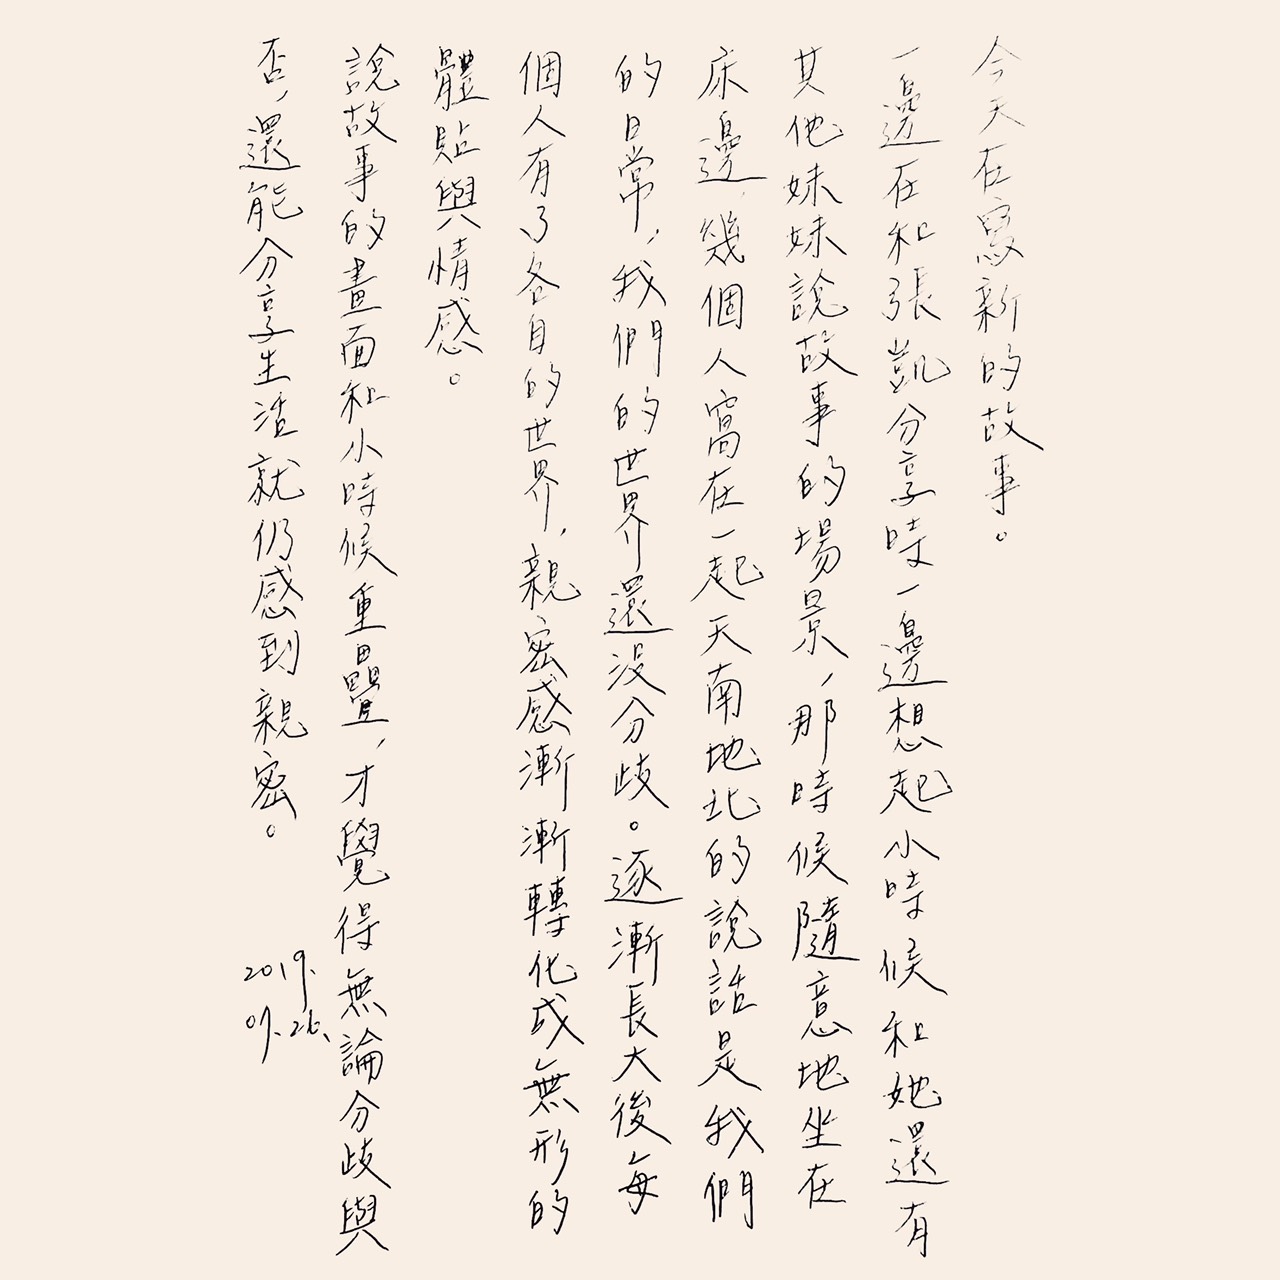 今天在寫新的故事。
一邊在和張凱分享時一邊想起小時候和她還有
其他妹妹說故事的場景，那時候隨意地坐在
床邊，幾個人窩在一起天南地北的說話是我們
的日常，我們的世界還沒分歧。逐漸長大後每
個人有了各自的世界，親密感漸漸轉化成無形的
體貼與情感。
說故事的畫面和小時候重疊，才覺得無論分歧與
否，還能分享生活就仍感到親密。
2019.
09.26.